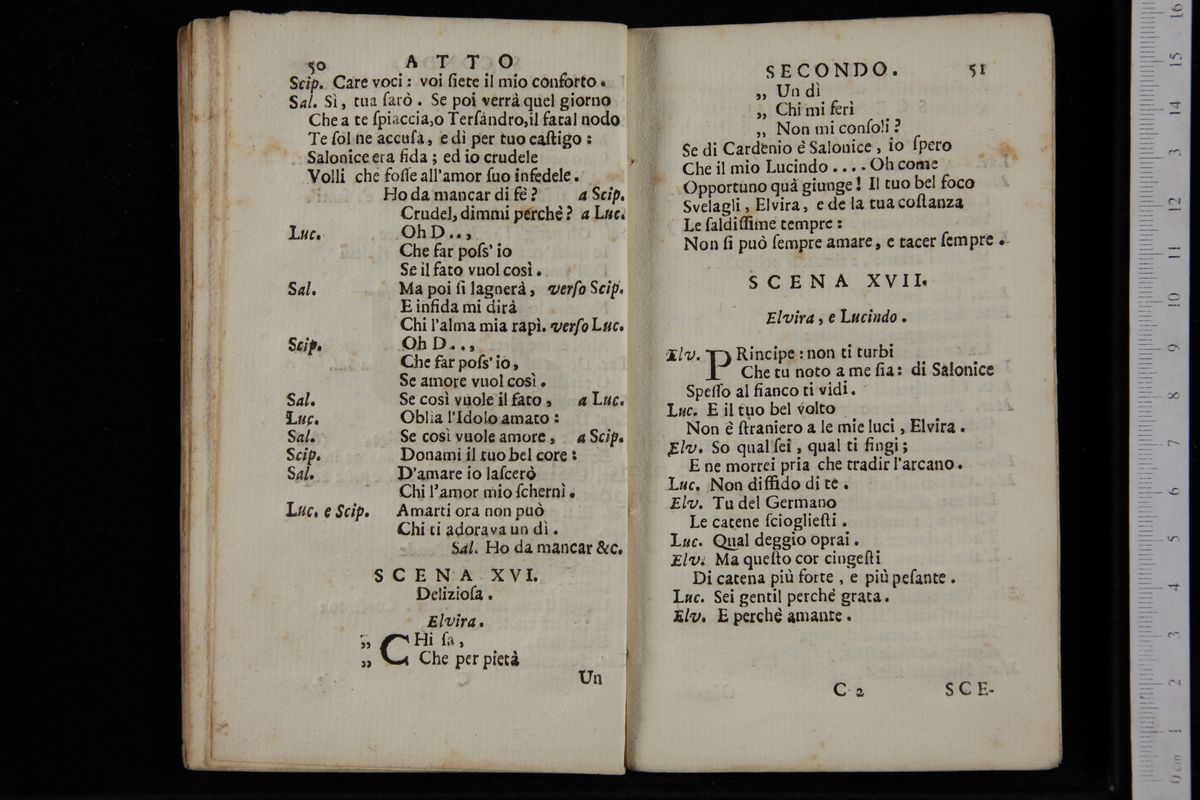 50 ATTO
Scip. Care voci: voi ſiete il mio conforto.
Sal. Sì, tua ſarò. Se poi verrà quel giorno
Che a te ſpiaccia, o Terſandro, il fatal nodo
Te ſol ne accuſa, e dì per tuo caſtigo:
Salonice era fida; ed io crudele
Volli che foſſe all'amor ſuo infedele.
Ho da mancar di fè? a Scip.
Crudel, dimmi perchè? a Luc.
Luc. Oh D..,
Che far poſs' io
Se il fato vuol così.
Sal. Ma poi ſi lagnerà, verſo Scip.
E infida mi dirà
Chi l'alma mia rapì. verſo Luc.
Scip. Oh D..,
Che far poſs' io,
Se amore vuol così.
Sal. Se così vuole il fato, a Luc.
Luc. Oblia l'Idolo amato:
Sal. Se così vuole amore, a Scip.
Scip. Donami il tuo bel core:
Sal. D'amare io laſcerò
Chi l'amor mio ſchernì.
Luc. e Scip. Amarti ora non può
Chi ti adorava un dì.
Sal. Ho da mancar &c.
SCENA XVI.
Delizioſa.
Elvira.
„ CHi ſa,
„ Che per pietà
Un
SECONDO. 51
„ Un dì
„ Chi mi ferì
„ Non mi conſoli?
Se di Cardenio è Salonice, io ſpero
Che il mio Lucindo .... Oh come
Opportuno quà giunge! Il tuo bel foco
Svelagli, Elvira, e de la tua coſtanza
Le ſaldiſſime tempre:
Non ſi può ſempre amare, e tacer ſempre.
SCENA XVII.
Elvira, e Lucindo.
Elv. PRincipe: non ti turbi
Che tu noto a me ſia: di Salonice
Speſſo al fianco ti vidi.
Luc. E il tuo bel volto
Non è ſtraniero a le mie luci, Elvira.
Elv. So qual ſei, qual ti fingi;
E ne morrei pria che tradir l'arcano.
Luc. Non diffido di te.
Elv. Tu del Germano
Le catene ſciogliefti.
Luc. Qual deggio oprai.
Elv. Ma queſto cor cingeſti
Di catena più forte, e più peſante.
Luc. Sei gentil perchè grata.
Elv. E perchè amante.
C 2 SCE-
0 cm 1 2 3 4 5 6 7 8 9 10 11 12 13 14 15 16